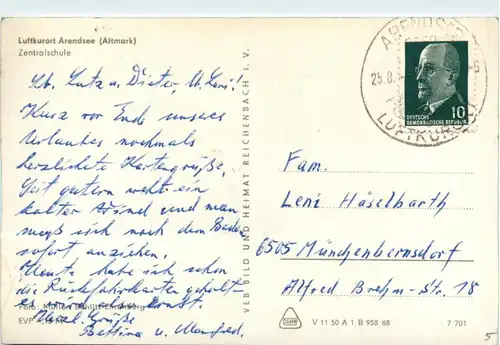 Luftkurort Arendsee (Altmark)
Zentralschule
Lb. Lutz u. Dieter, U. Leni!
Kurz vor End unseres
Urlaubes nochmals
herzlichste Kartengrüße,
Seit gestern weht ein
kalter Wind und man
muß sich nach dem Baden
sofort anziehen.
Heute habe ich schon
die Rückfahrkarten geholt-
es wird also Ernst.
Herzl. Grüße
Bettina u. Manfred.
EVP
VEB BILD UND HEIMAT REICHENBACH i. V.
ARENDSEE
25.8.
LUFTKURORT
10
DEUTSCHE
DEMOKRATISCHE REPUBLIK
Fam.
Leni Häselbarth
6505 Münchenbernsdorf
Alfred Brehm-Str. 18
V 11 50 A 1 B 958 68
7 701
5